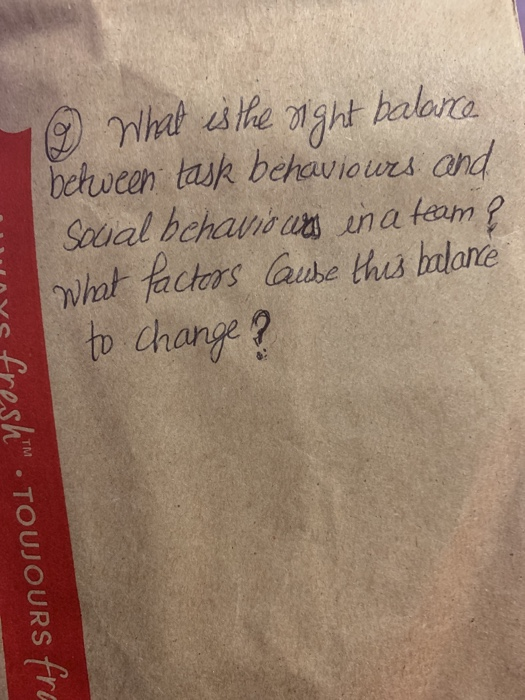 ② What is the right balance
between task behaviours and
Social behaviours in a team?
What factors Cause this balance
to change?
fresh™ • TOUJOURS